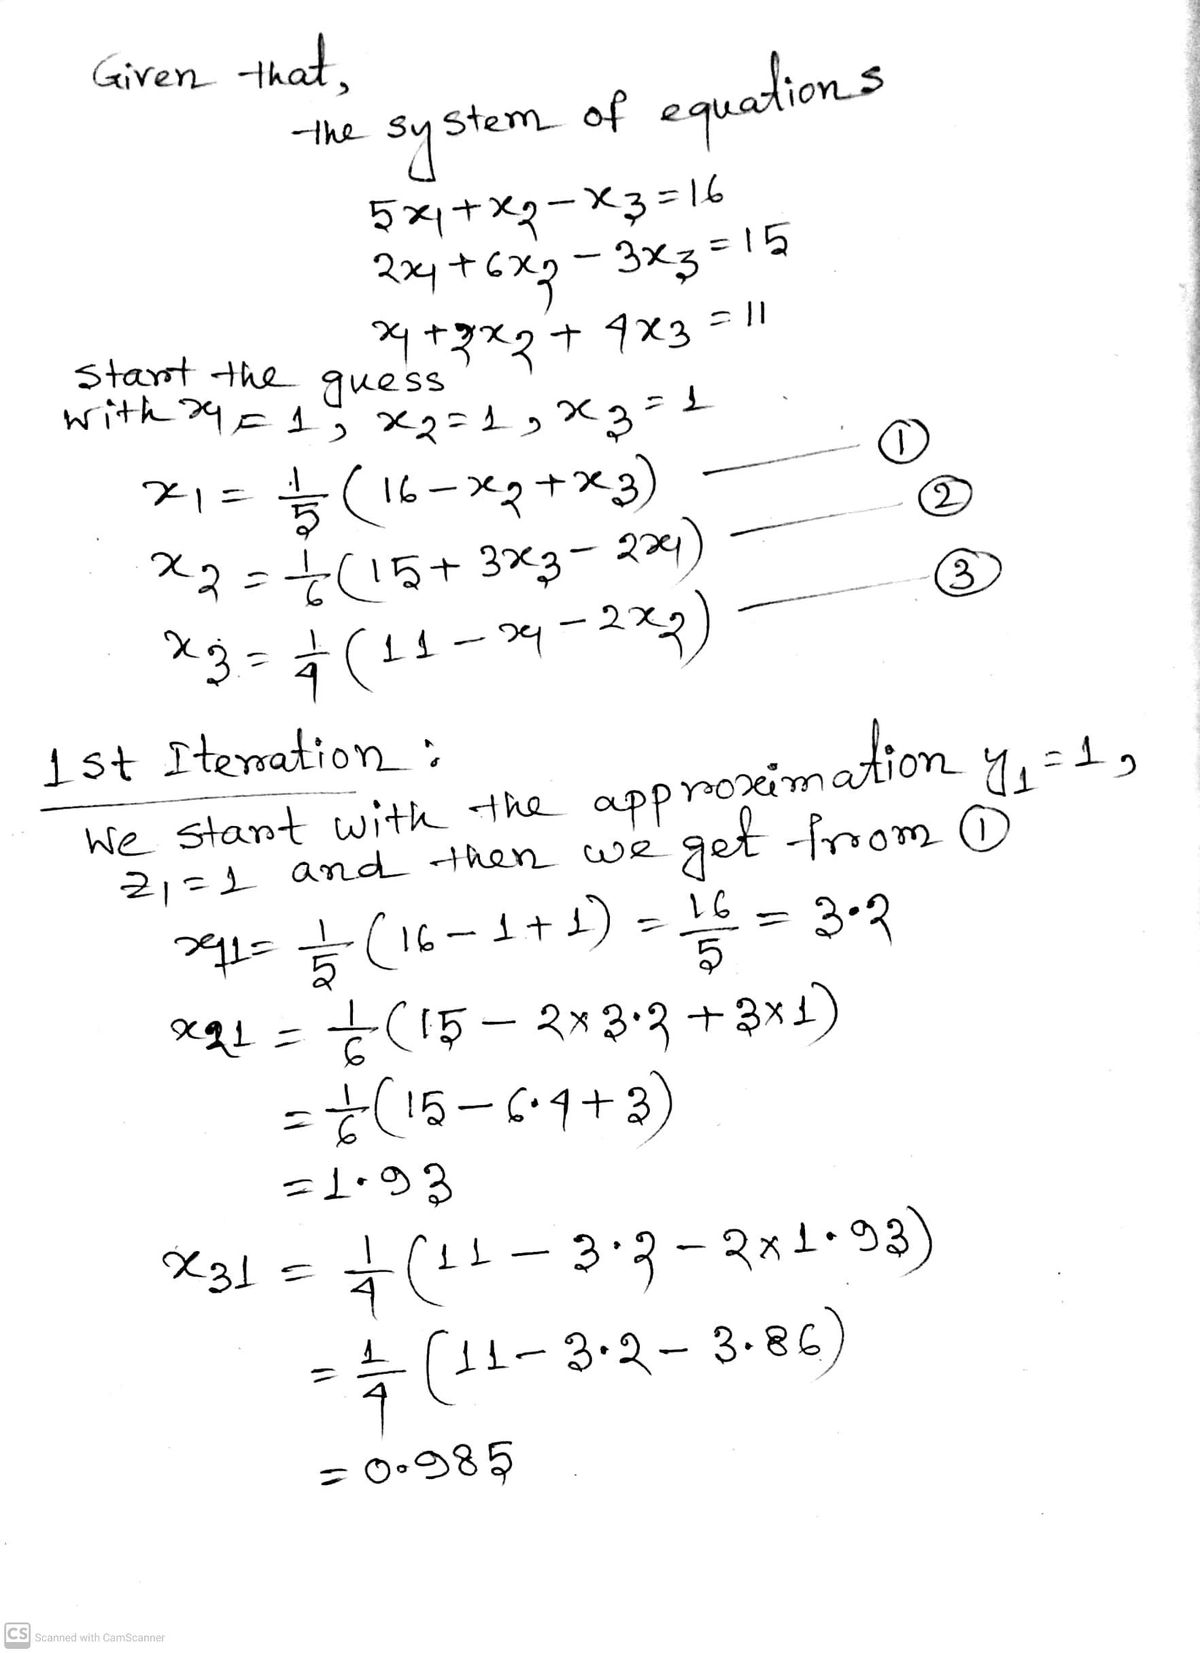 Given that,
the system of equations
5x1+x2-x3=16
2x1+6x2-3x3=15
x1+2x2+4x3=11
Start the guess
with x1=1, x2=1, x3=1
x1=1/5(16-x2+x3) ①
x2=1/6(15+3x3-2x1) ②
x3=1/4(11-x1-2x2) ③
1st Iteration:
We start with the approximation y1=1,
z1=1 and then we get from ①
x11=1/5(16-1+1)=16/5=3.2
x21=1/6(15-2×3.2+3×1)
=1/6(15-6.4+3)
=1.93
x31=1/4(11-3.2-2×1.93)
=1/4(11-3.2-3.86)
=0.985
CS Scanned with CamScanner